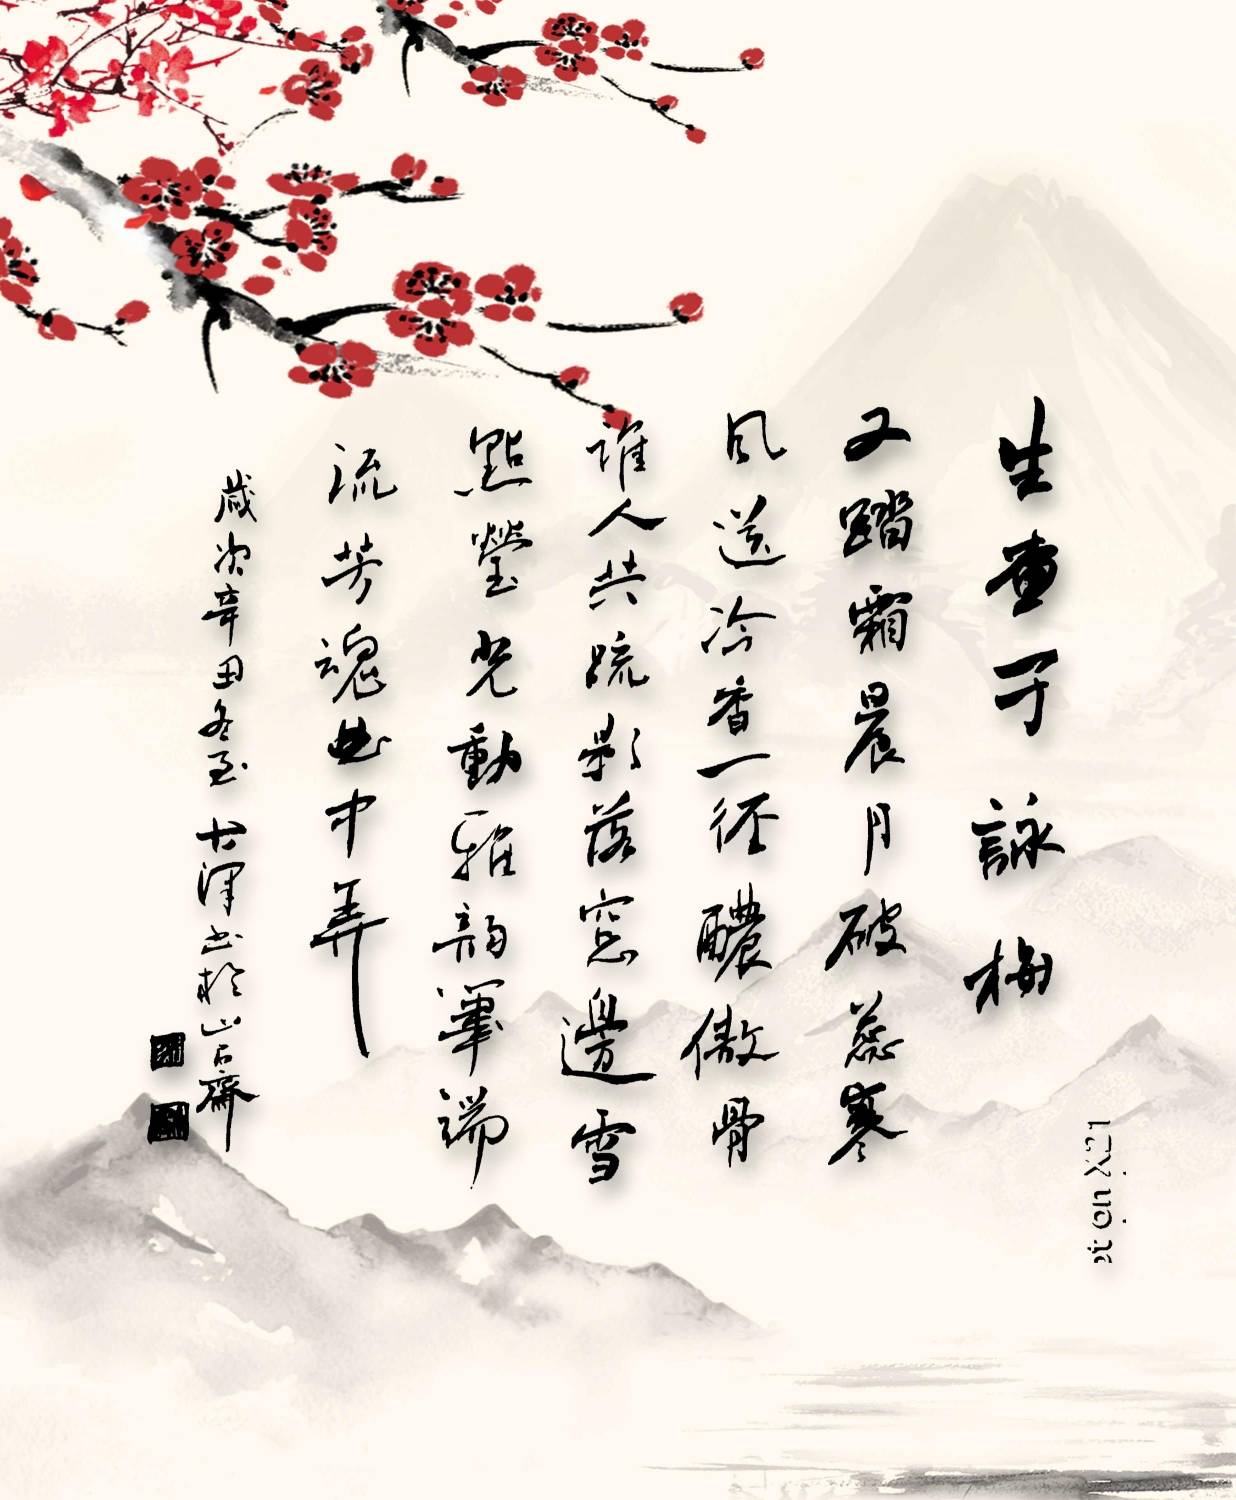 生查子 詠梅
又踏霜晨月破蕊寒
風送冷香一徑醲傲骨
誰人共疏影落窓邊雪
點瑩光動雅韻筆端
流芳魂曲中弄
歲次辛丑冬至 澤书於山石齋
on X21